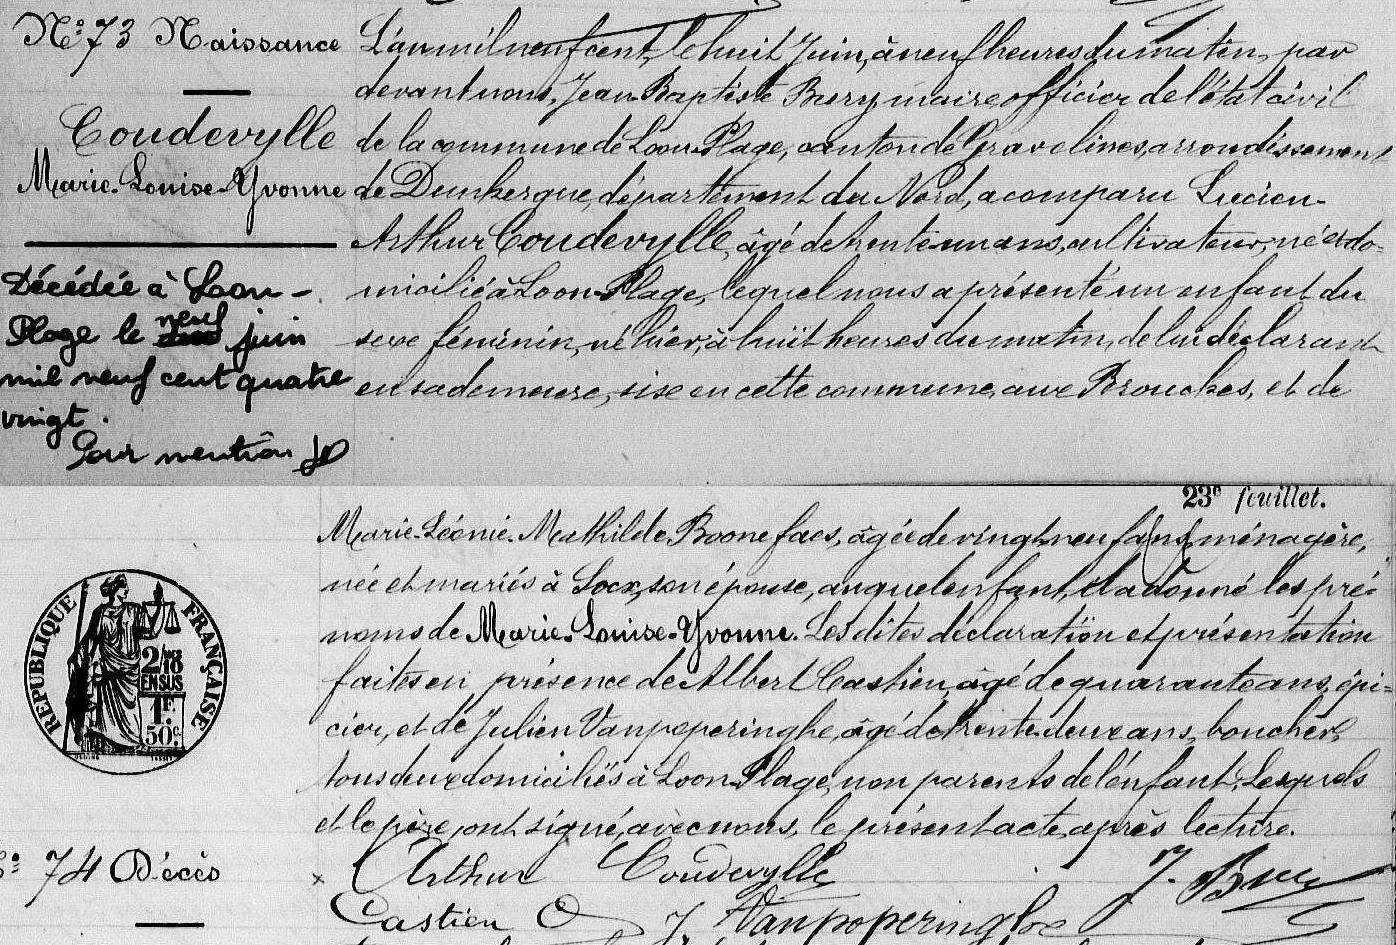 N° 73 Naissance
Coudevylle
Marie-Louise-Yvonne
Décédée à Loon-
Plage le neuf juin
mil neuf cent quatre
vingt.
Pour mention
L'an mil neuf cent, le huit Juin, à neuf heures du matin, par
devant nous, Jean Baptiste Bury, maire officier de l'état civil
de la commune de Loon-Plage, canton de Gravelines, arrondissement
de Dunkerque, département du Nord, a comparu Lucien-
Arthur Coudevylle, âgé de trente un ans, cultivateur, né et do-
micilié à Loon-Plage, lequel nous a présenté un enfant du
sexe féminin, né hier, à huit heures du matin, de lui déclarant
en sa demeure, sise en cette commune, aux Brouckes, et de
23e feuillet.
Marie-Léonie-Mathilde Boonefaes, âgée de vingt neuf ans, ménagère,
née et mariés à Socx, son épouse, auquel enfant, il a donné les pré-
noms de Marie-Louise-Yvonne. Les dites déclaration et présentation
faites en présence de Albert Castien, âgé de quarante ans, épi-
cier, et de Julien Vanpeperinghe, âgé de trente deux ans, boucher,
tous deux domiciliés à Loon-Plage, non parents de l'enfant, Lesquels
et le père, ont signé, avec nous, le présent acte, après lecture.
REPUBLIQUE FRANÇAISE
2/10 EN SUS
1F. 50c.
74 Décès
Arthur Coudevylle
J. Bury
Castien O
J Vanpoperinghe